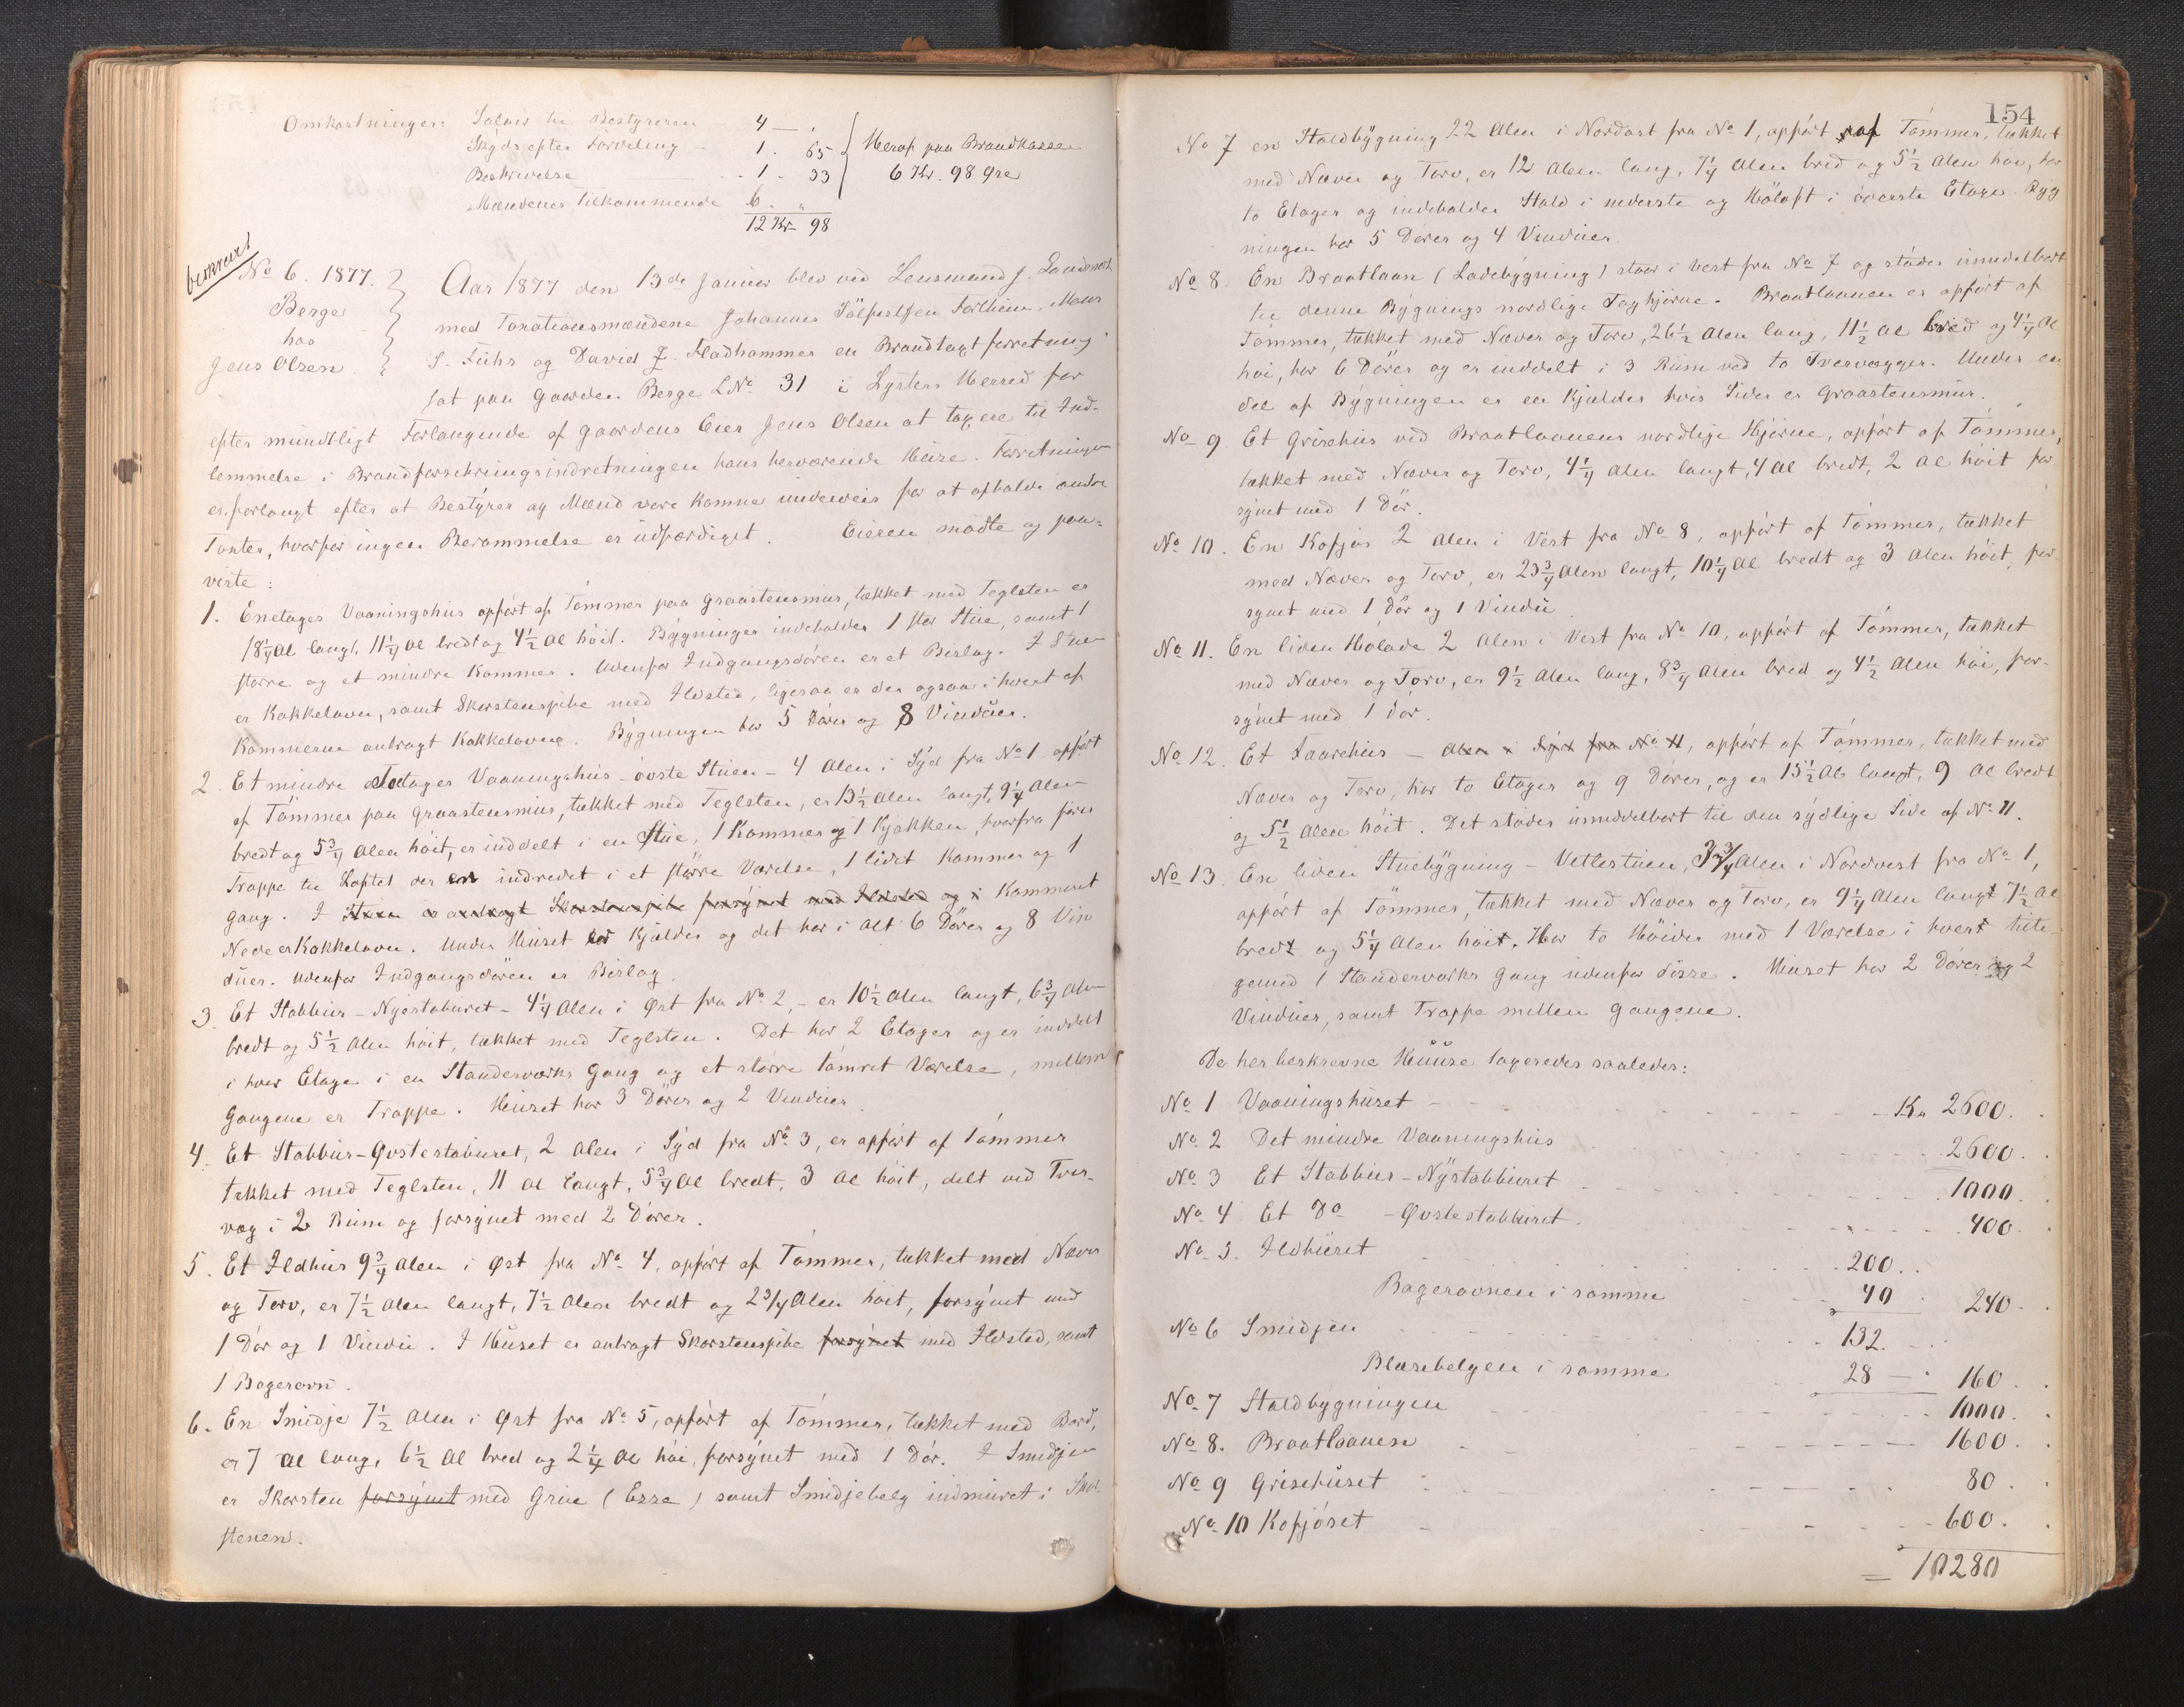 Omkostninger: Salair til Bestyreren 4 — "
Skyds efter Fordeling 1. 65 Herof paa Brandkassen
Beskrivelse 1. 33 6 Kr. 98 Øre
Mændenes tilkommende 6. "
12 Kr 98
beskrevet
No 6. 1877. Aar 1877 den 13de Januar blev ved Lensmand J.
Berge med Taxationsmændene Johannes Mons
hos S. Fuhr og David J. Fladhammer en Brandtaxtforretning
Jens Olsen sat paa Gaarden Berge LNo 31 i Lysters Herred for
efter mundtligt Forlangende af Gaardens Eier Jens Olsen at taxere til Ind-
lemmelse i Brandforsikringsindretningen hans herværende Huse. Forretningen
er forlangt efter at Bestyrer og Mænd vare komne underveis for at afholde andre
Taxter, hvorfor ingen Berammelse er udfærdiget. Eieren mødte og paa-
viste:
1. Enetages Vaaningshus opført af Tømmer paa Graastensmur, tækket med Teglsten er
18¼ Al langt, 11¼ Al bredt og 4½ Al høit. Bygningen indeholder 1 stor Stue, samt 1
større og et mindre Kammer. Udenfor Indgangsdøren er et Bislag. I Stuen
er Kakkelovn, samt Skorstenspibe med Ildsted, ligesaa er der ogsaa i hvert af
Kammerne anbragt Kakkelovne. Bygningen har 5 Døre og 8 Vinduer.
2. Et mindre Toetages Vaaningshus - øvste Stuen - 4 Alen i Syd fra No 1 opført
af Tømmer paa Graastensmur, tækket med Teglsten, er 13½ Alen langt, 9¼ Alen
bredt og 5¾ Alen høit, er inddelt i en Stue, 1 Kammer og 1 Kjøkken, hvorfra fører
Trappe til Loftet der er indredet i et større Værelse, 1 lidet Kammer og 1
Gang. I Stuen er anbragt Skorstenspibe forsynet med Ildsted og i Kammeret
Nede er Kakkelovn. Under Huset er Kjælder og det har i alt 6 Døre og 8 Vin
duer. Udenfor Indgangsdøren er Bislag.
3. Et Stabbur - Nyestaburet - 4¼ Alen i Øst fra No 2, - er 10½ Alen langt, 6¾ Alen
bredt og 5½ Alen høit, tækket med Teglsten. Det har 2 Etager og er inddelt
i hver Etage i en Standerværks Gang og et større tømret Værelse, mellem
Gangene er Trappe. Huset har 3 Dører og 2 Vinduer.
4. Et Stabbur - Øvstestaburet, 2 Alen i Syd fra No 3, er opført af Tømmer
tækket med Teglsten, 11 Al langt, 5¾ Al bredt, 3 Al høit, delt ved Tver-
væg i 2 Rum og forsynet med 2 Dører.
5. Et Ildhus 9¾ Alen i Øst fra No 4, opført af Tømmer, tækket med Næver
og Torv, er 7½ Alen langt, 7½ Alen bredt og 2¾ Alen høit, forsynet med
1 Dør og 1 Vindu. I Huset er anbragt Skorstenspibe forsynet med Ildsted, samt
1 Bagerovn.
6. En Smidje 7½ Alen i Øst fra No 5, opført af Tømmer, tækket med Bord,
er 7 Al lang, 6½ Al bred og 2¼ Al høi, forsynet med 1 Dør. I Smidjen
er Skorsten forsynet med Grue (Esse) samt Smidjebelg indmuret i Skor
stenen.
154
No 7 en Staldbygning 22 Alen i Nordost fra No 1, opført af Tømmer, tækket
med Næver og Torv, er 12 Alen lang, 7¼ Alen bred og 5½ Alen høi, har
to Etager og indeholder Stald i nederste og Höloft i øverste Etage. Byg
ningen har 5 Dører og 4 Vinduer.
No 8. En Braatlaan (Ladebygning) staar i Vest fra No 7 og støder umiddelbart
til denne Bygnings nordlige Taghjørne. Braatlaanen er opført af
Tømmer, tækket med Næver og Torv, 26½ Alen lang, 11½ Al bred og 4¼ Al
høi, har 6 Dører og er inddelt i 3 Rum ved to Tvervægger. Under en
del af Bygningen er en Kjælder hvis Sider er Graastensmur.
No 9. Et Grisehus ved Braatlaanens nordlige Hjørne, opført af Tømmer,
tækket med Næver og Torv, 4¼ Alen langt, 4 Al bredt, 2 Al høit for
synet med 1 Dør.
No 10. En Kofjøs 2 Alen i Vest fra No 8, opført af Tømmer, tækket
med Næver og Torv, er 23¾ Alen langt, 10¼ Al bredt og 3 Alen høit, for
synet med 1 Dør og 1 Vindu
No 11. En liden Hølade 2 Alen i Vest fra No 10, opført af Tømmer, tækket
med Næver og Torv, er 9½ Alen lang, 8¾ Alen bred og 4½ Alen høi, for-
synet med 1 Dør.
No 12. Et Saarehus — Alen i Syd fra No 11, opført af Tømmer, tækket med
Næver og Torv, har to Etager og 9 Dører, og er 15½ Al langt, 9 Al bredt
og 5½ Alen høit. Det støder umiddelbart til den sydlige Side af No 11.
No 13. En liden Stuebygning - Vetlestuen, 3¾ Alen i Nordvest fra No 1,
opført af Tømmer, tækket med Næver og Torv, er 9¼ Alen langt 7½ Al
bredt og 5¼ Alen høit. Har to Høider med 1 Værelse i hvert tilli-
gemed 1 Standerværks Gang udenfor disse. Huset har 2 Dører og 2
Vinduer, samt Trappe mellem Gangene.
De her beskrevne Huuse taxeredes saaledes:
No 1 Vaaningshuset - Kr 2600.
No 2 Det mindre Vaaningshus 2600.
No 3 Et Stabbur - Nystabburet 1000.
No 4 Et Do - Øvstestabburet. 400.
No 5. Ildhuset 200.
Bagerovnen i samme 40 240.
No 6 Smidjen 132.
Blæsebelgen i samme 28 — 160.
No 7 Staldbygningen 1000.
No 8. Braatlaanen 1600.
No 9 Grisehuset 80.
No 10 Kofjøset 600.
= 10280